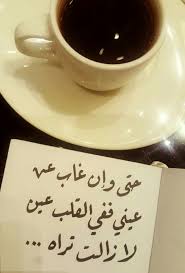 حتى وإن غاب عن
عيني ففي القلب عين
لا زالت تراه ...